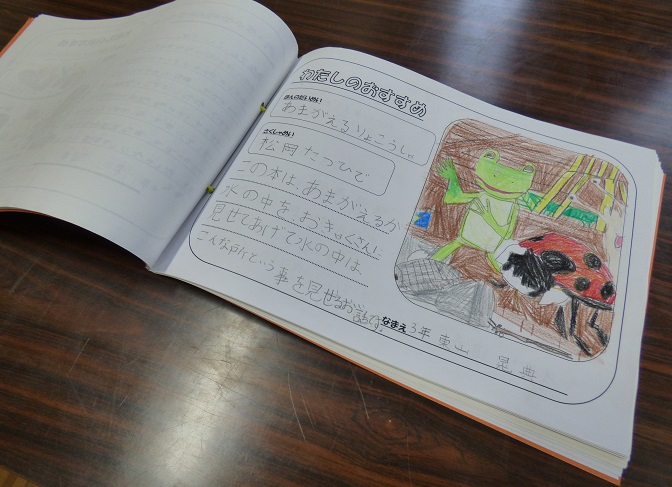 わたしのおすすめ
ほんのだいめい
あまがえるりょこうしゃ
さくしゃめい
松岡たつひで
この本は、あまがえるが
水の中をおきゃくさんに
見せてあげて水の中は
こんな所という事を見せるお話です。
なまえ 3年